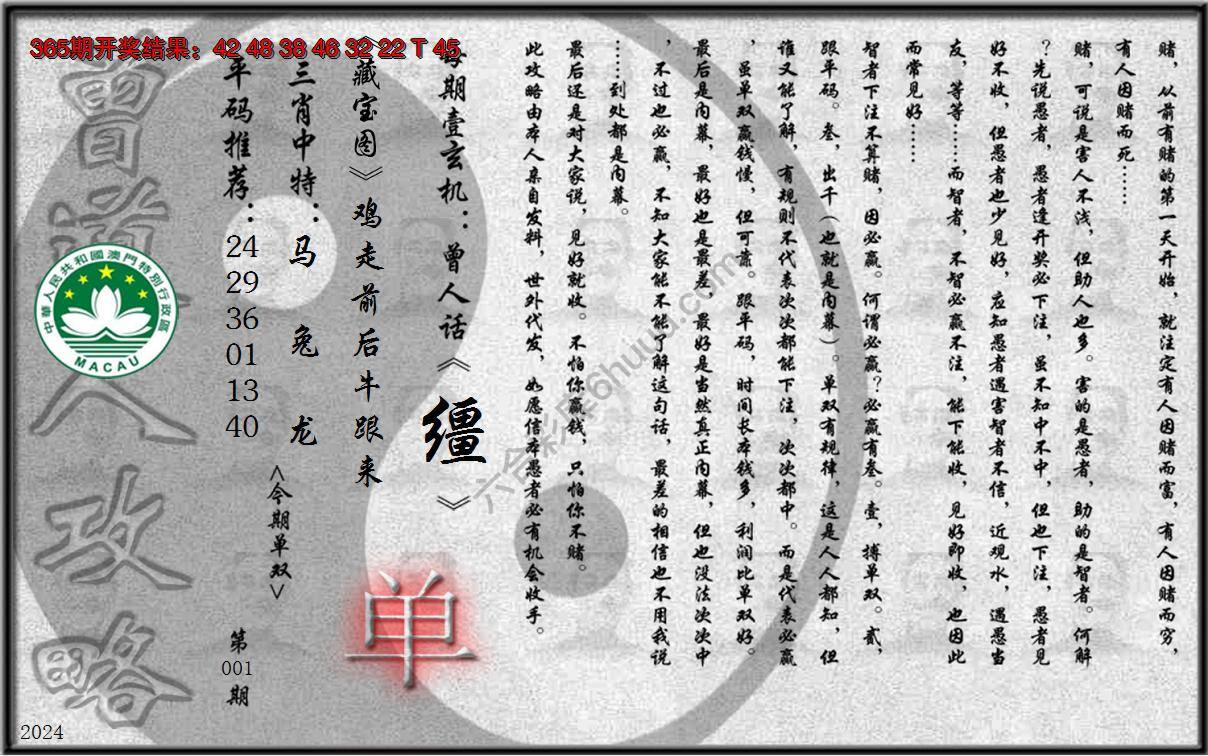 365期开奖结果：42 48 38 46 32 22 T 45
赌，从前有赌的第一天开始，就注定有人因赌而富，有人因赌而穷，
有人因赌而死……
赌，可说是害人不浅，但助人也多。害的是愚者，助的是智者。何解
？先说愚者，愚者逢开奖必下注，虽不知中不中，但也下注，愚者见
好不收，但愚者也少见好，应知愚者遇害智者不信，近观水，遇愚当
友，等等……而智者，不智必赢不注，能下能收，见好即收，也因此
而常见好……
智者下注不算赌，因必赢。何谓必赢？必赢有叁。壹，搏单双。贰，
跟平码。叁，出千（也就是内幕）。单双有规律，这是人人都知，但
谁又能了解，有规则不代表次次都能下注，次次都中。而是代表必赢
，虽单双赢钱慢，但可靠。跟平码，时间长本钱多，利润比单双好。
最后是内幕，最好也是最差，最好是当然真正内幕，但也没法次次中
，不过也必赢，不知大家能不能了解这句话，最差的相信也不用我说
……到处都是内幕。
最后还是对大家说，见好就收。不怕你赢钱，只怕你不赌。
此攻略由本人亲自发料，世外代发，如愿信本愚者必有机会收手。
每期壹玄机：曾人话《缰》
《藏宝图》鸡走前后牛跟来
三肖中特：马 兔 龙
<今期单双>
单
平码推荐：24 29 36 01 13 40
第001期
曾道人攻略
中華人民共和國澳門特別行政區
MACAU
2024
六合彩库6huuu.com